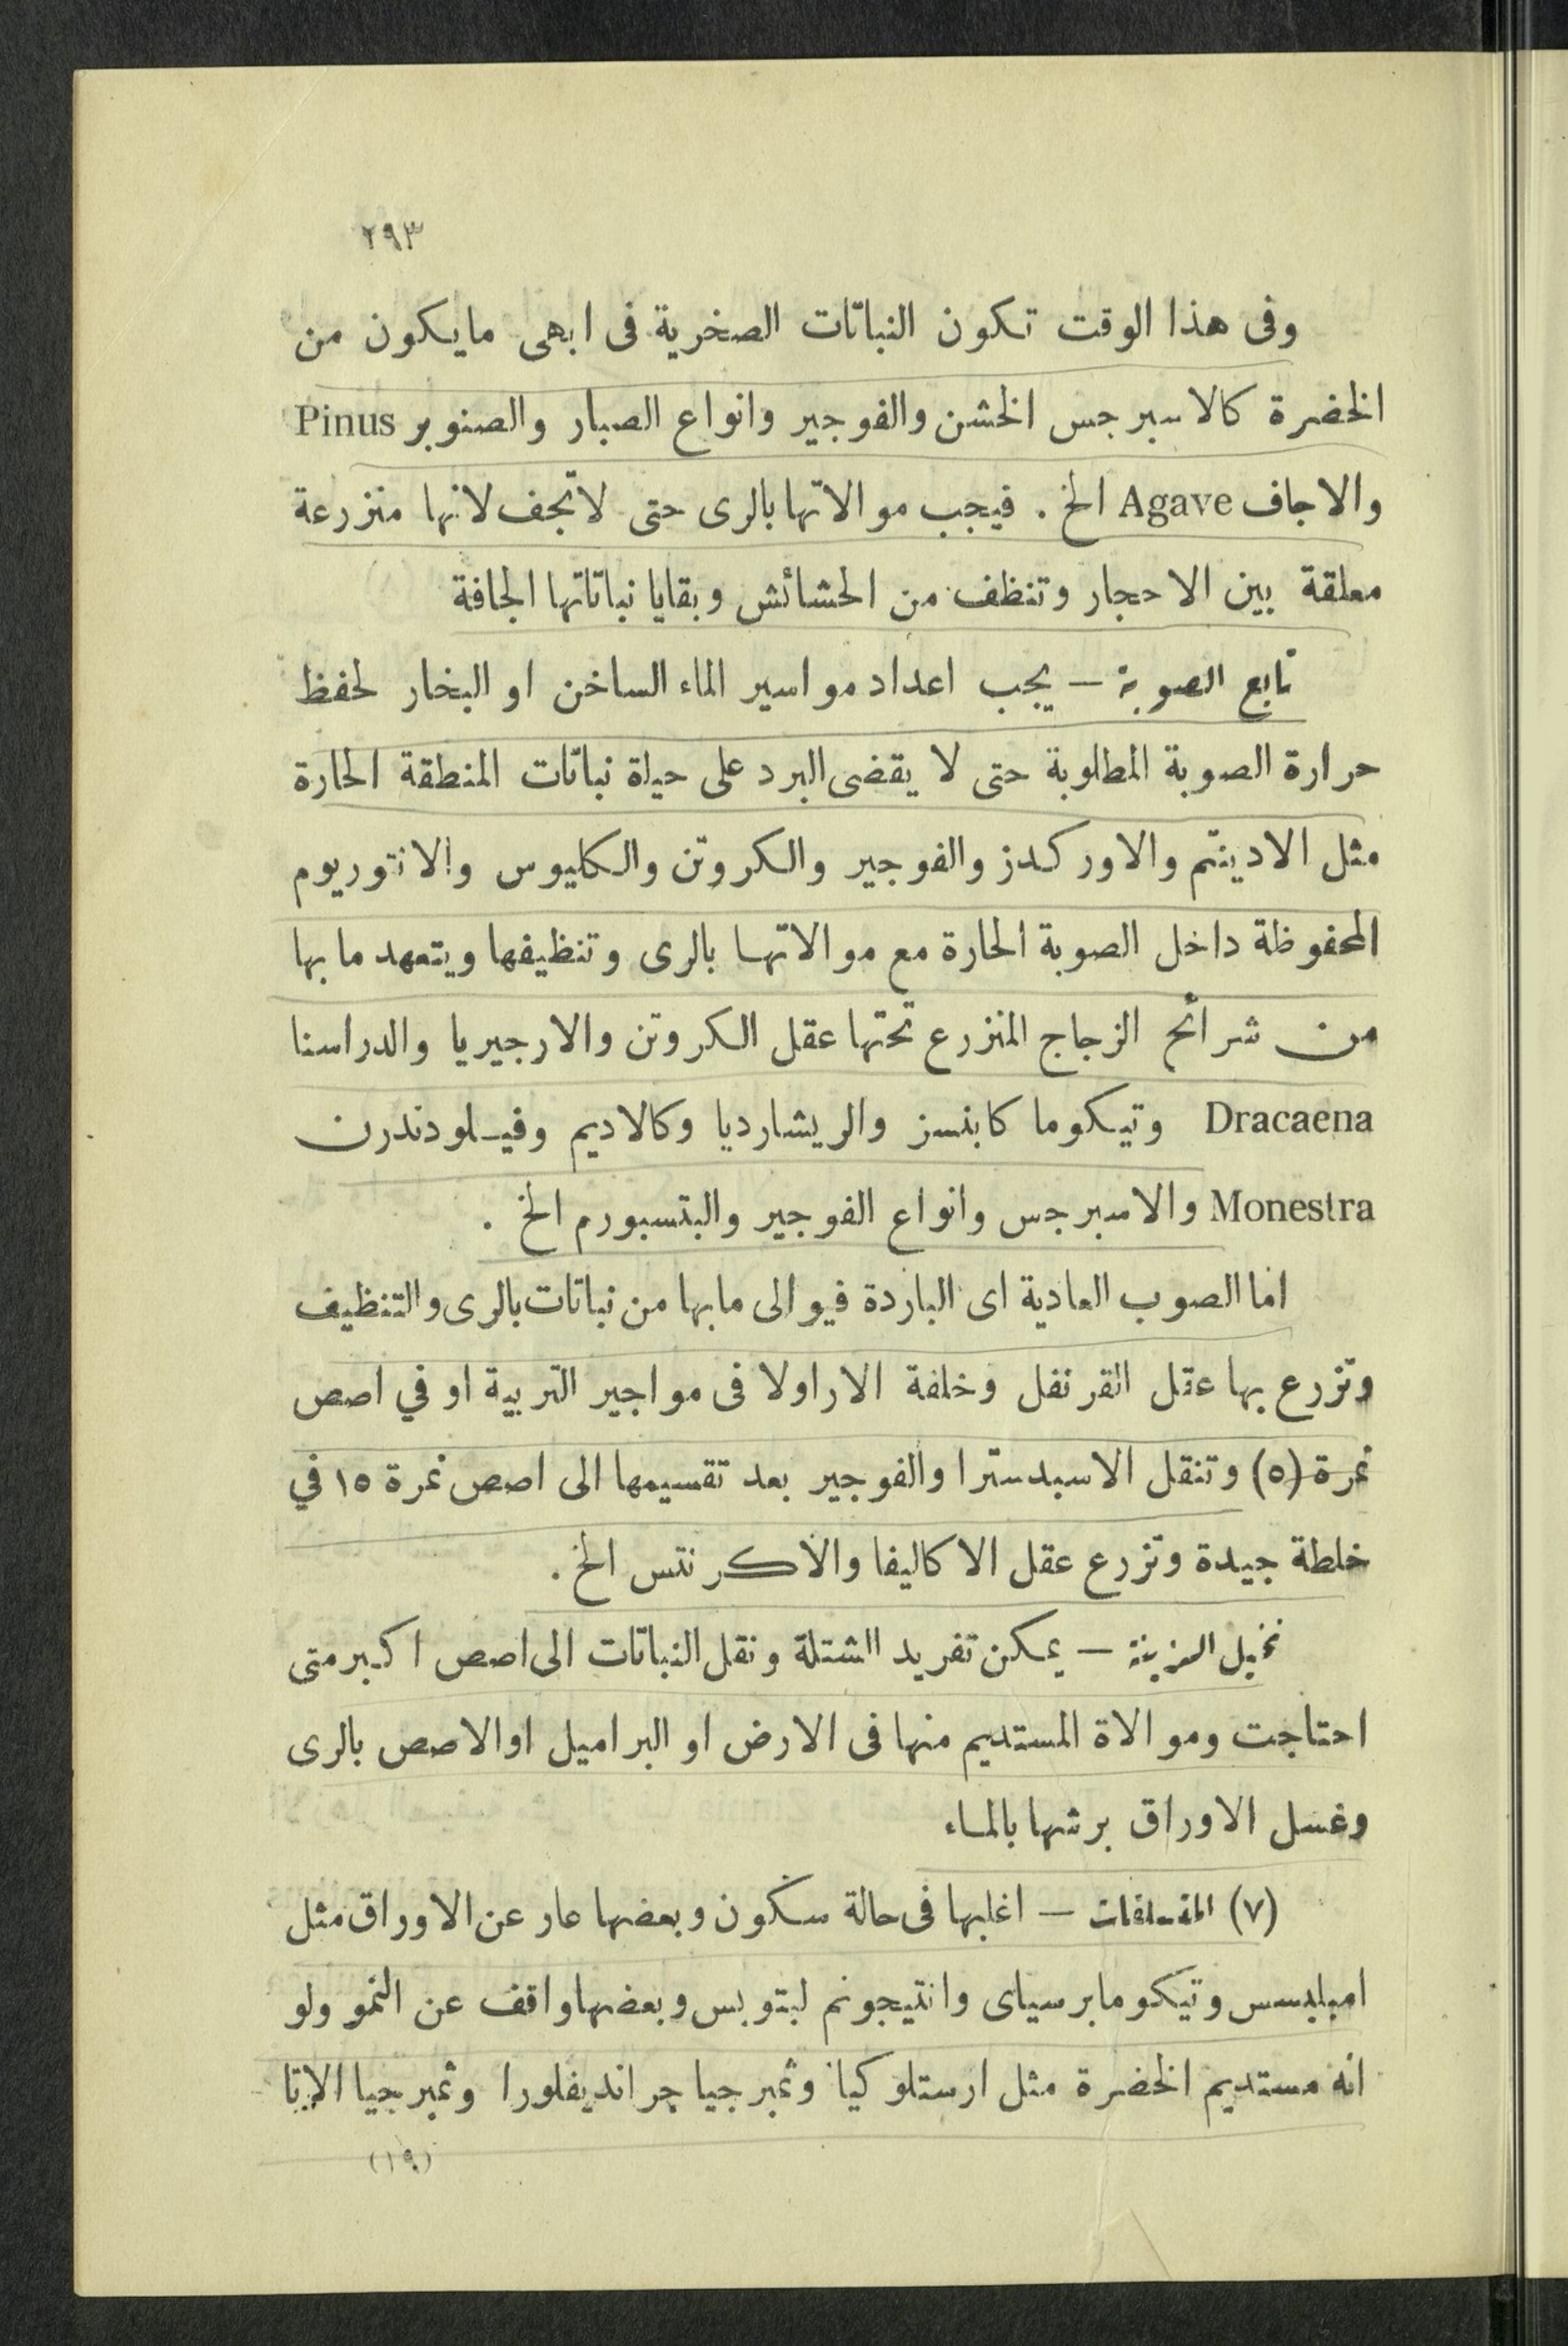 ٢٩٣
وفى هذا الوقت تكون النباتات الصخرية فى ابهى مايكون من
الخضرة كالاسبرجس الخشن والفوجير وانواع الصبار والصنوبر Pinus
والاجاف Agave الخ . فيجب موالاتها بالرى حتى لاتجف لانها منزرعة
معلقة بين الاحجار وتنظف من الحشائش وبقايا نباتاتها الجافة
تابع الصوبة — يجب اعداد مواسير الماء الساخن او البخار لحفظ
حرارة الصوبة المطلوبة حتى لا يقضى البرد على حياة نباتات المنطقة الحارة
مثل الادينتم والاوركدز والفوجير والكروتن والكليوس والانتوريوم
المحفوظة داخل الصوبة الحارة مع موالاتها بالرى وتنظيفها ويتعهد مابها
من شرائح الزجاج المنزرع تحتها عقل الكروتن والارجيريا والدراسنا
Dracaena وتيكوما كابنسز والريشارديا وكالاديم وفيلودندرن
Monestra والاسبرجس وانواع الفوجير والبتسبورم الخ .
اما الصوب العادية اى الباردة فيوالى مابها من نباتات بالرى والتنظيف
وتزرع بها عقل القرنفل وخلفة الاراولا فى مواجير التربية او في اصص
نمرة (٥) وتنقل الاسبدسترا والفوجير بعد تقسيمها الى اصص نمرة ١٥ في
خلطة جيدة وتزرع عقل الاكاليفا والاكرنتس الخ .
نخيل الزينة — يمكن تفريد الشتلة ونقل النباتات الى اصص اكبر متى
احتاجت وموالاة المستديم منها فى الارض او البراميل او الاصص بالرى
وغسل الاوراق برشها بالماء
(٧) المتسلقات — اغلبها فى حالة سكون وبعضها عار عن الاوراق مثل
امبلبسس وتيكومابرسياى وانتيجونم لبتوبس وبعضها واقف عن النمو ولو
انه مستديم الخضرة مثل ارستلوكيا وثمبرجيا جرانديفلورا وثمبرجيا الاتا
(١٩)